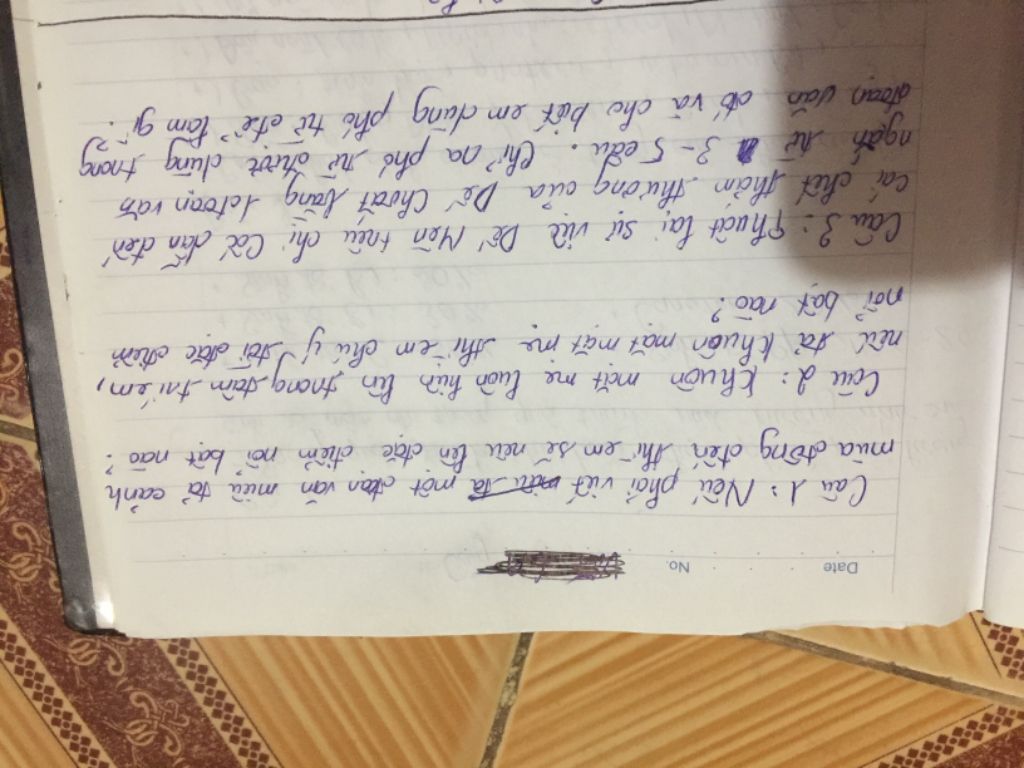 Date No
Câu 1: Nếu phải viết một đoạn văn miêu tả cảnh
mùa đông đến thì em sẽ nêu lên đặc điểm nổi bật nào?
Câu 2: Khuôn mặt mẹ luôn hiện lên trong tâm trí em,
nếu tả khuôn mặt mẹ thì em chú ý tới đặc điểm
nổi bật nào?
Câu 3: Thuật lại sự việc Dế Mèn trêu chị Cốc dẫn đến
cái chết thảm thương của Dế Choắt bằng 1 đoạn văn
ngắn từ 3-5 câu. Chỉ ra phó từ được dùng trong
đoạn văn đó và cho biết em dùng phó từ để làm gì?